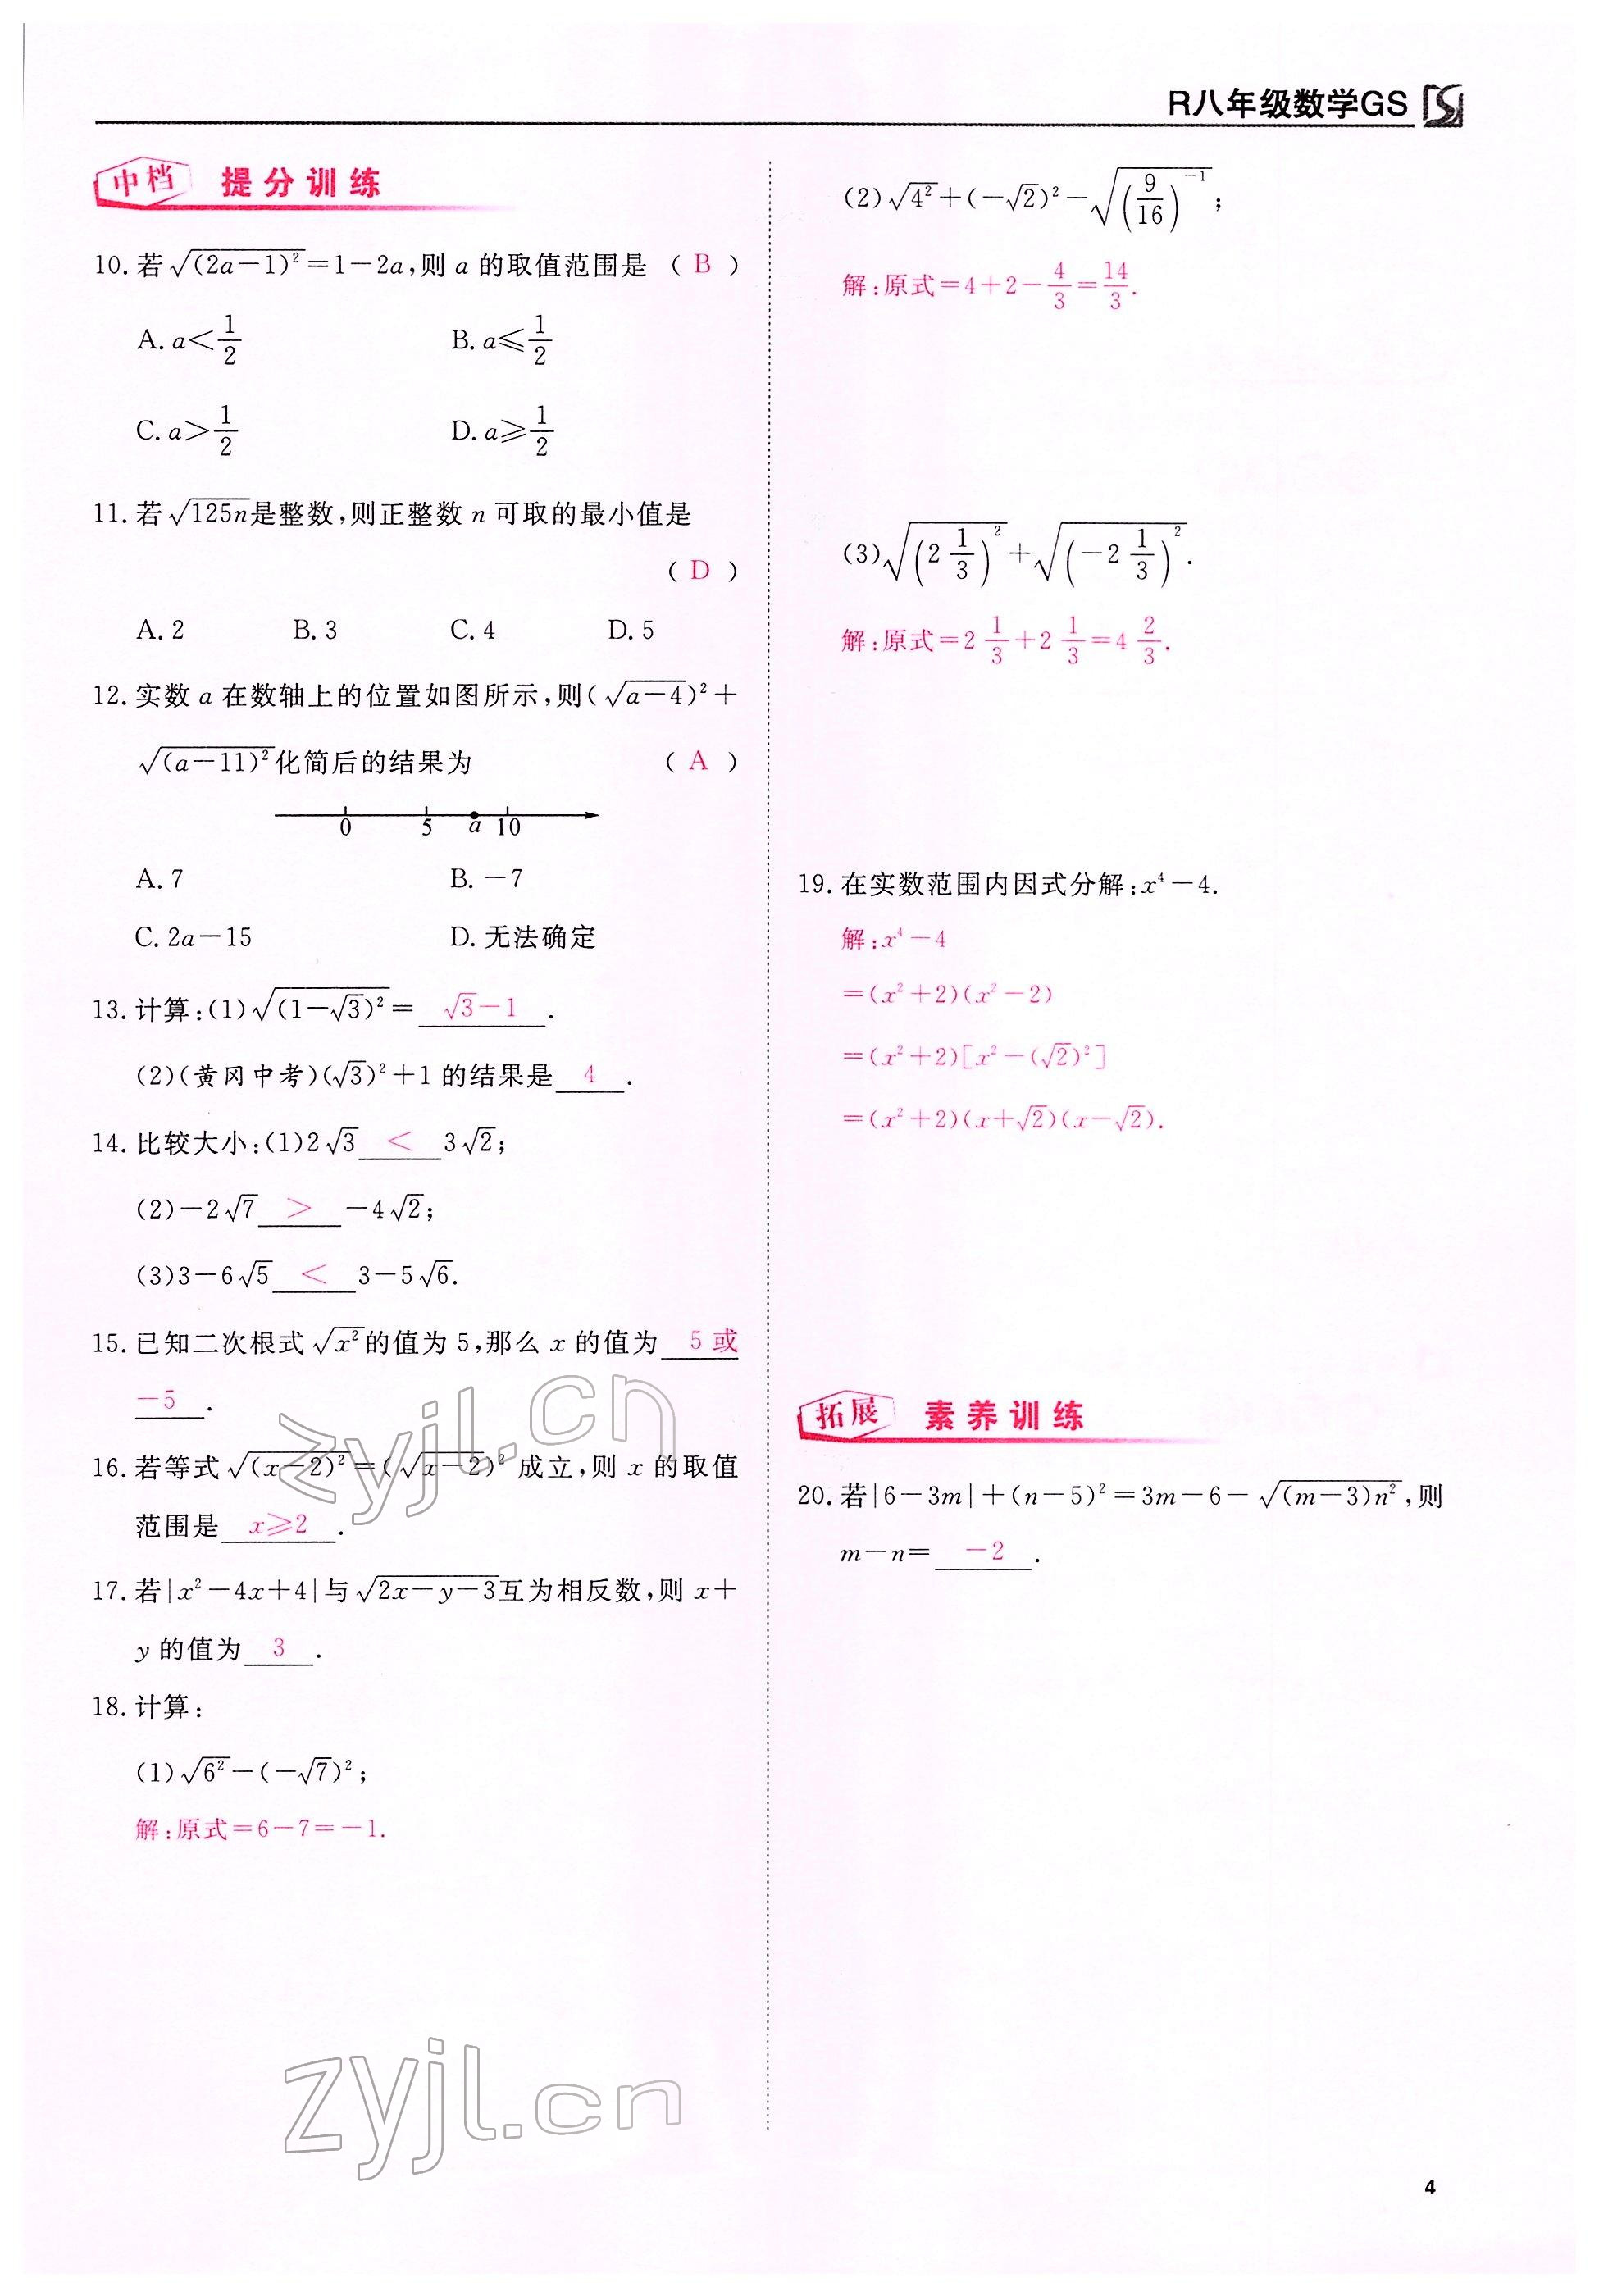 R八年级数学GS
中档 提分训练
10. 若√(2a−1)²=1−2a,则 a 的取值范围是 ( B )
A. a<1/2 B. a⩽1/2
C. a>1/2 D. a⩾1/2
11. 若√125n是整数,则正整数 n 可取的最小值是
( D )
A. 2 B. 3 C. 4 D. 5
12. 实数 a 在数轴上的位置如图所示,则(√a−4)²+
√(a−11)²化简后的结果为 ( A )
0 5 a 10
A. 7 B. −7
C. 2a−15 D. 无法确定
13. 计算:(1)√(1−√3)²= √3−1 .
(2)(黄冈中考)(√3)²+1 的结果是 4 .
14. 比较大小:(1)2√3 < 3√2;
(2)−2√7 > −4√2;
(3)3−6√5 < 3−5√6.
15. 已知二次根式√x²的值为 5,那么 x 的值为 5 或
−5 .
16. 若等式√(x−2)²=(√x−2)² 成立,则 x 的取值
范围是 x⩾2 .
17. 若|x²−4x+4|与√2x−y−3互为相反数,则 x+
y 的值为 3 .
18. 计算:
(1)√6²−(−√7)²;
解:原式=6−7=−1.
(2)√4²+(−√2)²−√(9/16)⁻¹;
解:原式=4+2−4/3=14/3.
(3)√(2 1/3)²+√(−2 1/3)².
解:原式=2 1/3+2 1/3=4 2/3.
19. 在实数范围内因式分解:x⁴−4.
解:x⁴−4
=(x²+2)(x²−2)
=(x²+2)[x²−(√2)²]
=(x²+2)(x+√2)(x−√2).
拓展 素养训练
20. 若|6−3m|+(n−5)²=3m−6−√(m−3)n²,则
m−n= −2 .
zyjl.cn
zyjl.cn
4